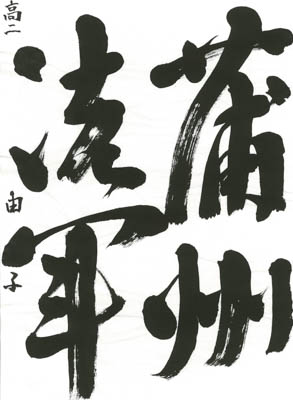 蒲州
諸軍
高二 由子